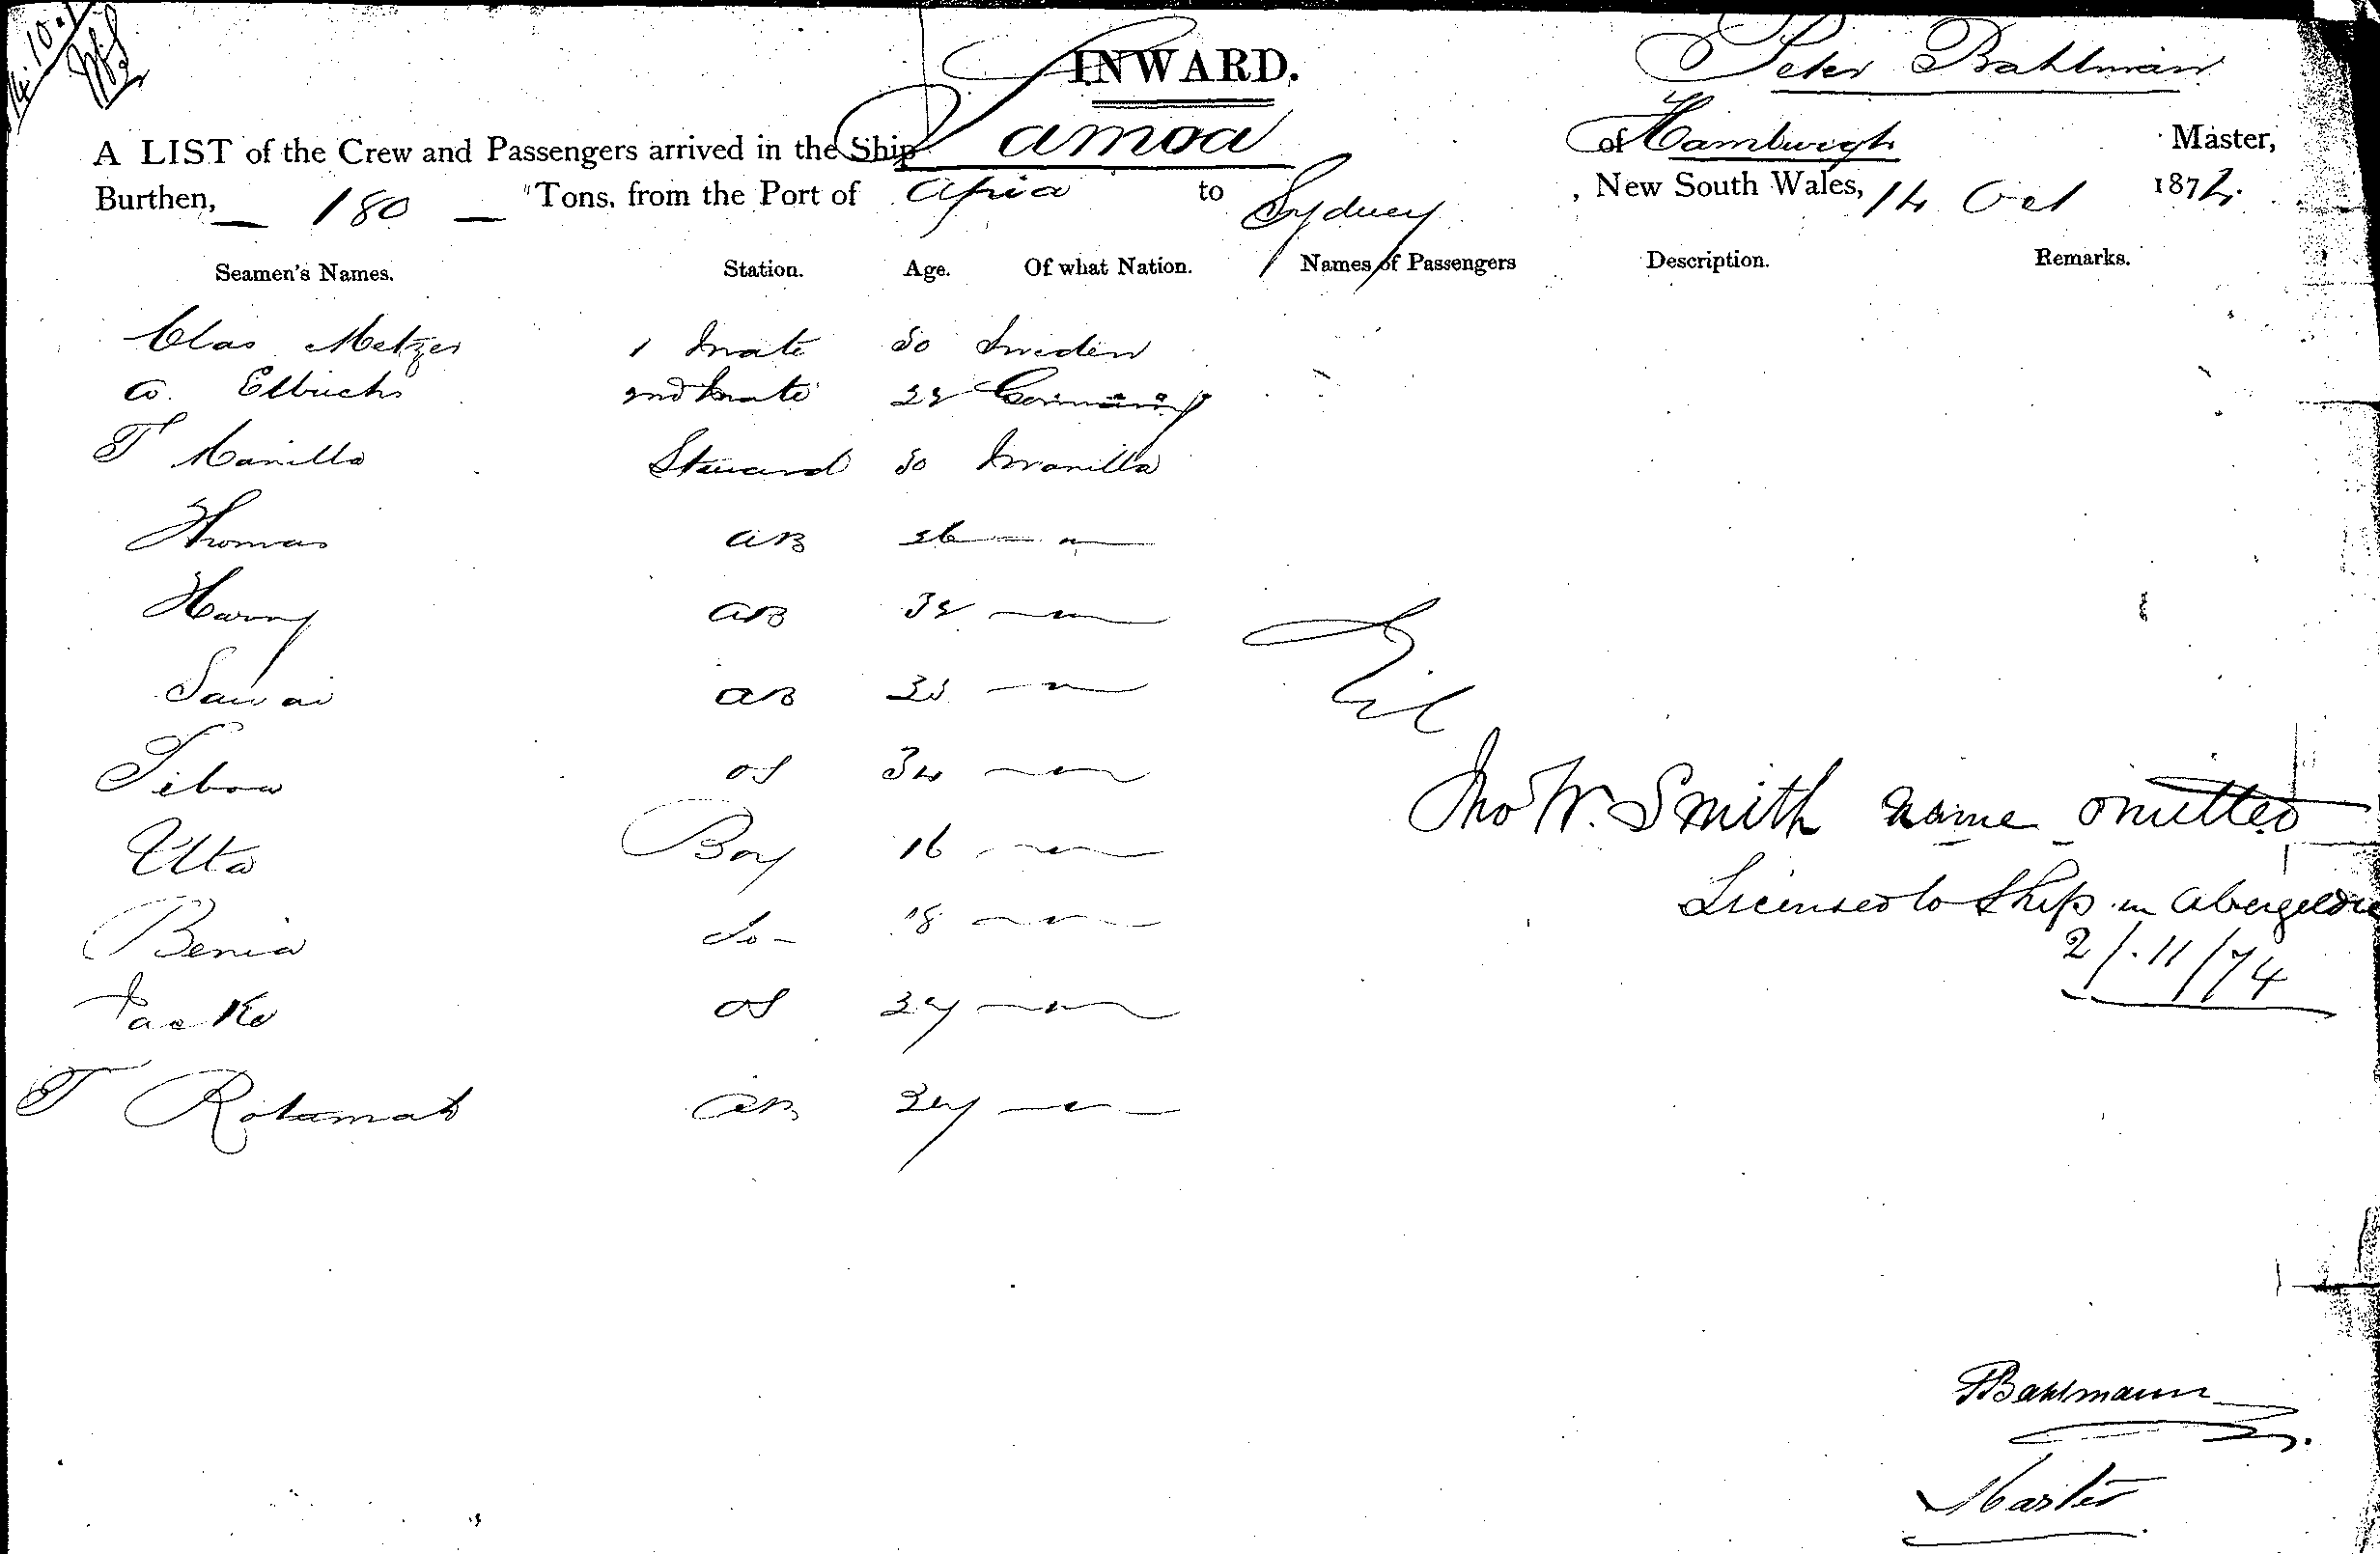 14.10.
INWARD.
Peter Bahlman
A LIST of the Crew and Passengers arrived in the Ship Samoa of Hamburgh Master,
Burthen, — 180 — Tons, from the Port of Apia to Sydney, New South Wales, 14 Oct 1874.
Seamen's Names. Station. Age. Of what Nation. Names of Passengers Description. Remarks.
Clas Metzer 1 mate 30 Sweden
2nd mate Germany
T Manilla Steward 30 Manilla
Thomas AB
Harry AB 32
Sawai AB
Nil
Tibow OS 34
Jno W. Smith name omitted
Utta Boy 16
Licensed to Ship in Abergeldie
Benia do - 18
2/.11/74
Jacko OS
T Rotumah AB
PBahlmann
Master